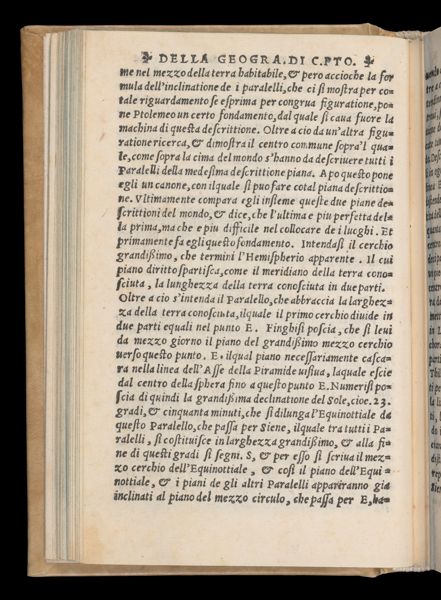 DELLA GEOGRA. DI C. PTO.
me nel mezzo della terra habitabile, & pero accioche la for
mula dell'inclinatione de i paralelli, che ci si mostra per co-
tale riguardamento se esprima per congrua figuratione, po-
ne Ptolemeo un certo fondamento, dal quale si caua fuore la
machina di questa descrittione. Oltre a cio da un'altra figu-
ratione ricerca, & dimostra il centro commune sopra'l qua-
le, come sopra la cima del mondo s'hanno da descriuere tutti i
Paralelli della medesima descrittione piana. Apo questo pone
egli un canone, con ilquale si puo fare cotal piana descrittio-
ne. Vltimamente compara egli insieme queste due piane de-
scrittioni del mondo, & dice, che l'ultima e piu perfetta del-
la prima, ma che e piu difficile nel collocare de i luoghi. Et
primamente fa egli questo fondamento. Intendasi il cerchio
grandissimo, che termini l'Hemispherio apparente. Il cui
piano diritto spartisca, come il meridiano della terra cono-
sciuta, la lunghezza della terra conosciuta in due parti.
Oltre a cio s'intenda il Paralello, che abbraccia la larghez-
za della terra conosciuta, ilquale il primo cerchio diuide in
due parti equali nel punto E. Finghisi poscia, che si leui
da mezzo giorno il piano del grandissimo mezzo cerchio
uerso questo punto. E. ilqual piano necessariamente casca-
ra nella linea dell'Asse della Piramide uisiua, laquale escie
dal centro della sphera fino a questo punto E. Numerisi po-
scia di quindi la grandissima declinatione del Sole, cioe. 23.
gradi, & cinquanta minuti, che si dilunga l'Equinottiale da
questo Paralello, che passa per Siene, ilquale tra tutti i Pa-
ralelli, si costituisce in larghezza grandissimo, & alla fi-
ne di questi gradi si segni. S, & per esso si scriua il mez-
zo cerchio dell'Equinottiale, & cosi il piano dell'Equi-
nottiale, & i piani de gli altri Paralelli appariranno gia
inclinati al piano del mezzo circulo, che passa per E, ha-